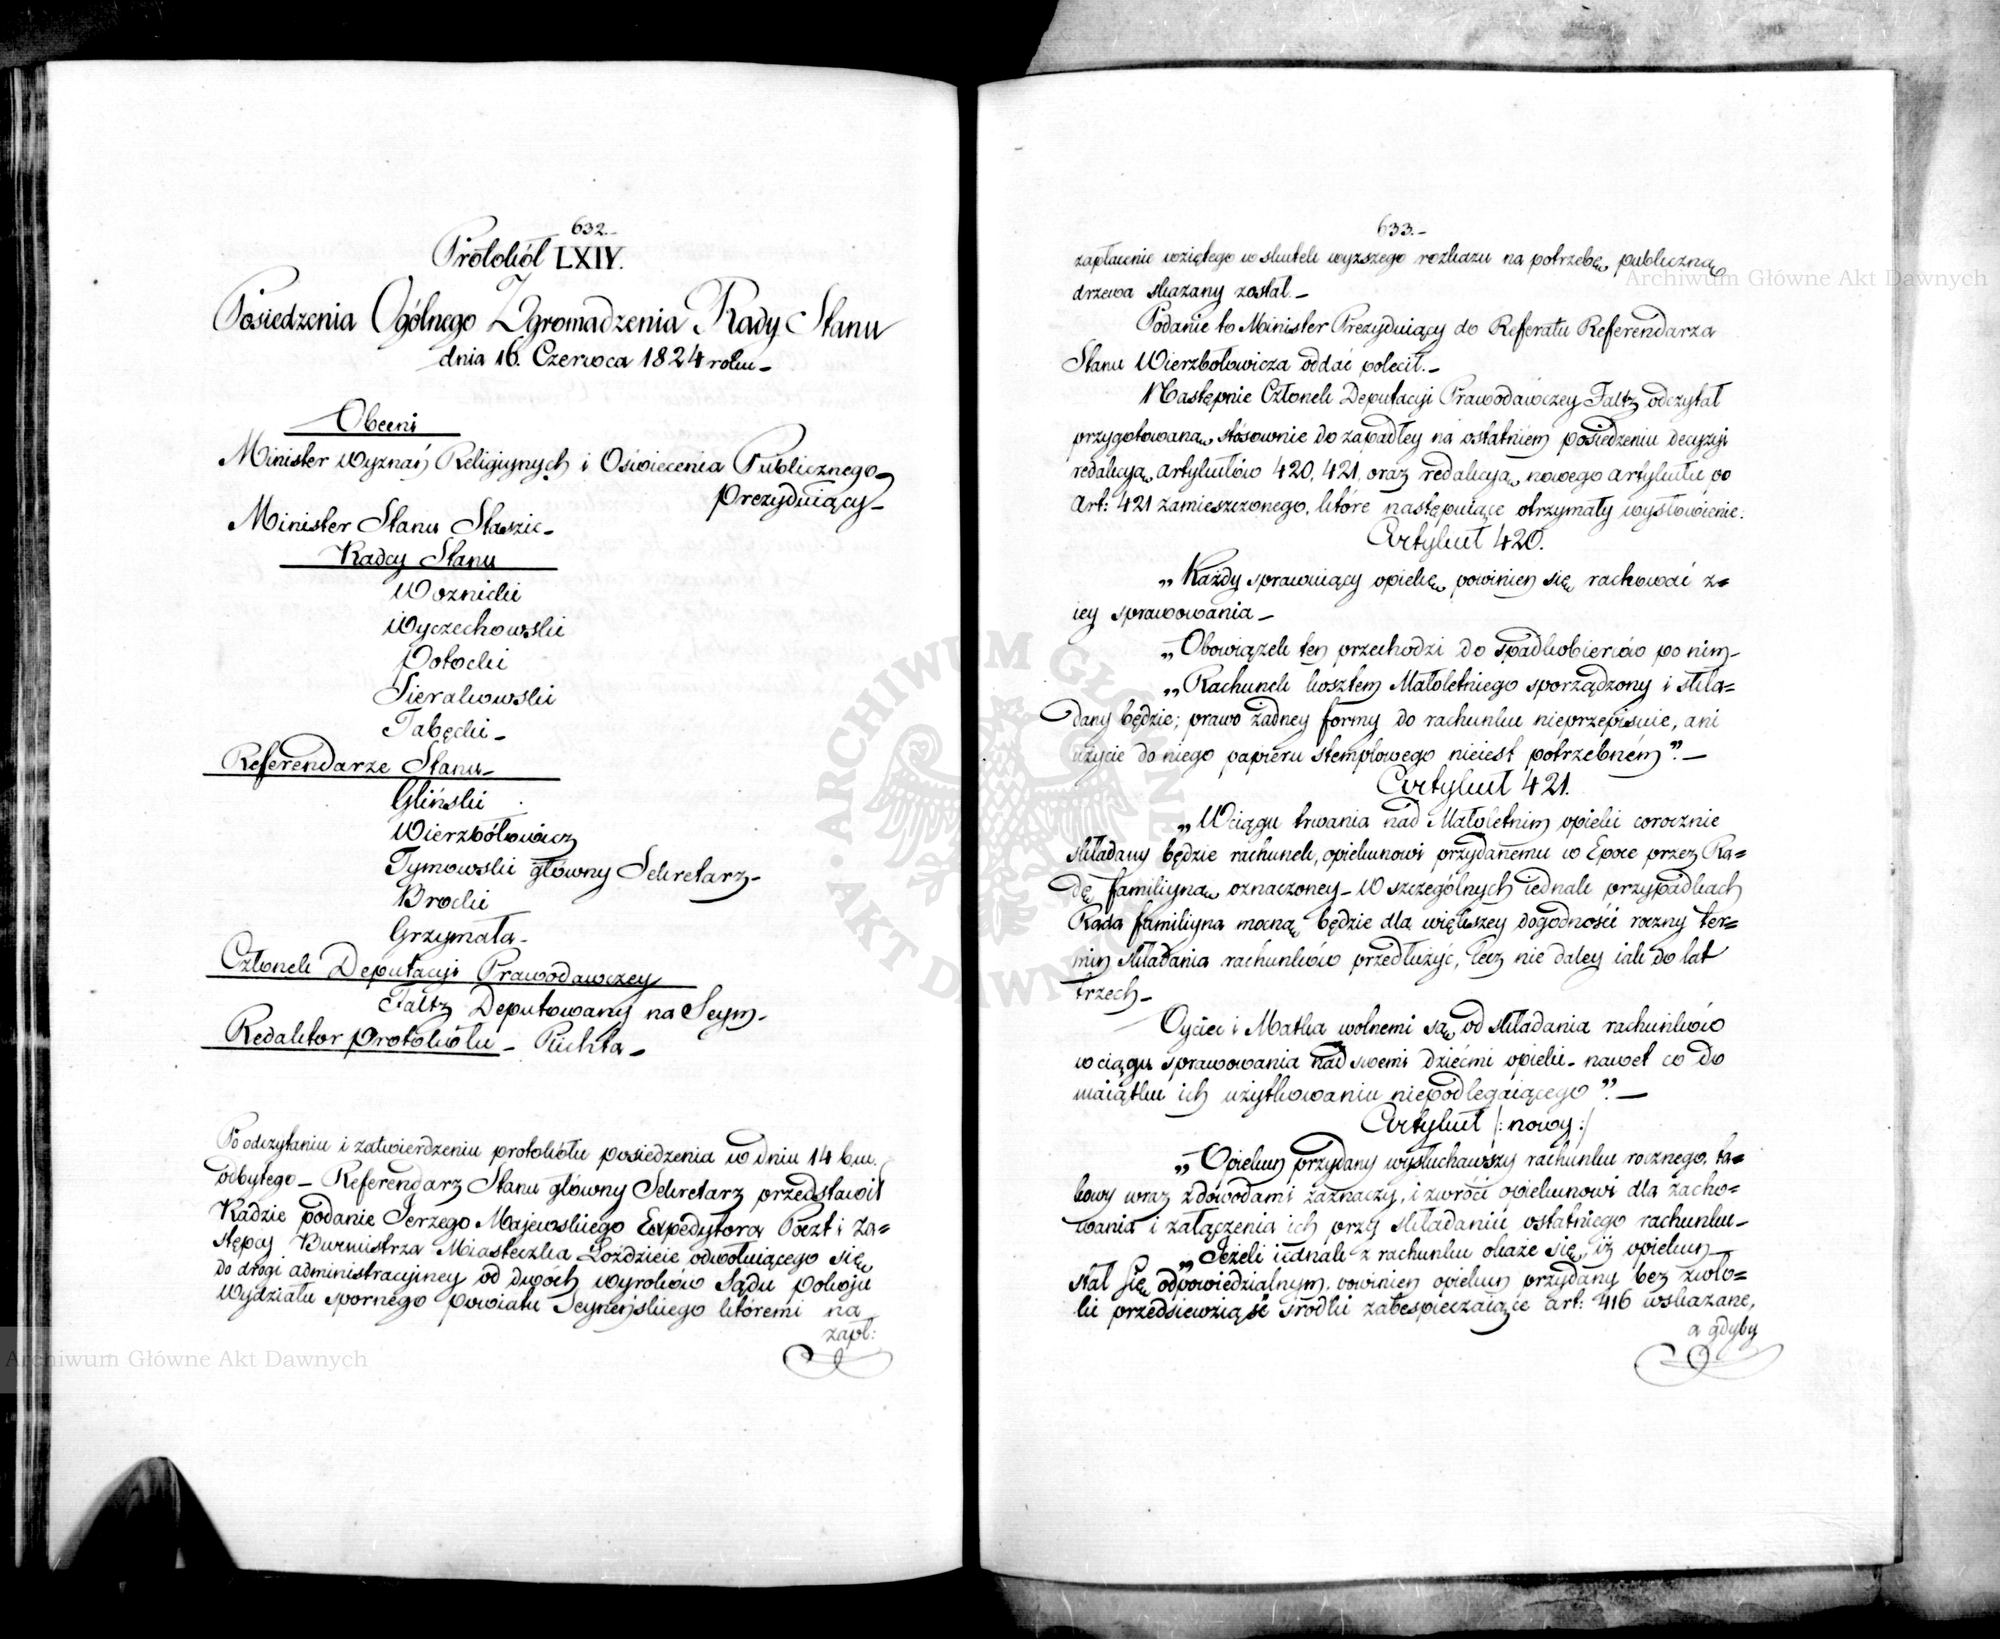 632.
Protokół LXIV.
Posiedzenia Ogólnego Zgromadzenia Rady Stanu
dnia 16. Czerwca 1824 roku
Obecni
Minister Wyznań Religiynych i Oświecenia Publicznego
Prezyduiący
Minister Stanu Staszic
Radcy Stanu
Woznicki
Wyczechowski
Potocki
Sierakowski
Tabęcki
Referendarze Stanu
Gliński
Wierzbółowicz
Tymowski główny Sekretarz
Brocki
Grzymała
Członek Deputacyi Prawodawczey
Faltz Deputowany na Seym
Redaktor protokółu Puchta
Po odczytaniu i zatwierdzeniu protokółu posiedzenia w dniu 14 b.m.
odbytego Referendarz Stanu główny Sekretarz przedstawił
Radzie podanie Jerzego Majewskiego Expedytora Poczt i za=
stępcy Burmistrza Miasteczka Łoździeie odwołuiącego się
do drogi administracyiney od dwóch wyroków Sądu pokoju
Wydziału spornego Powiatu Seyneńskiego któremi na
zapł:
633.
zapłacenie wziętego w skutek wyższego rozkazu na potrzebę publiczną
drzewa skazany został.
Podanie to Minister Prezyduiący do Referatu Referendarza
Stanu Wierzbołowicza oddać polecił.
Następnie Członek Deputacyi Prawodawczey Faltz odczytał
przygotowaną stosownie do zapadłey na ostatniem posiedzeniu decyzyi
redakcyą artykułów 420, 421, oraz redakcyą nowego artykułu po
Art: 421 zamieszczonego, które następuiące otrzymały wysłowienie:
Artykuł 420.
„Każdy sprawuiący opiekę, powinien się rachować z=
iey sprawowania
„Obowiązek ten przechodzi do spadkobierców po nim
„Rachunek kosztem Małoletniego sporządzony i skła=
dany będzie; prawo żadney formy do rachunku nieprzepisuie, ani
użycie do niego papieru stemplowego nieiest potrzebném".
Artykuł 421.
„W ciągu trwania nad Małoletnim opieki corocznie
składany będzie rachunek, opiekunowi przydanemu w Epoce przez Ra=
dę familiyną oznaczoney W szczególnych iednak przypadkach
Rada familiyna mocną będzie dla większey dogodności roczny ter=
min składania rachunków przedłużyć, lecz nie daley iak do lat
trzech
Oyciec i Matka wolnemi są od składania rachunków
w ciągu sprawowania nad swemi dziećmi opieki nawet co do
maiątku ich użytkowaniu niepodlegaiącego".
Artykuł /: nowy :/
„Opiekun przydany wysłuchawszy rachunku rocznego, ta=
kowy wraz z dowodami zaznaczy, i zwróci opiekunowi dla zacho=
wania i załączenia ich przy składaniu ostatniego rachunku
„Jeżeli iednak z rachunku okaże się, iż opiekun
stał się odpowiedzialnym, powinien opiekun przydany bez zwło=
ki przedsiewziąść środki zabespieczaiące art: 416 wskazane,
a gdyby
Archiwum Główne Akt Dawnych
Archiwum Główne Akt Dawnych
ARCHIWUM GŁÓWNE AKT DAWNYCH